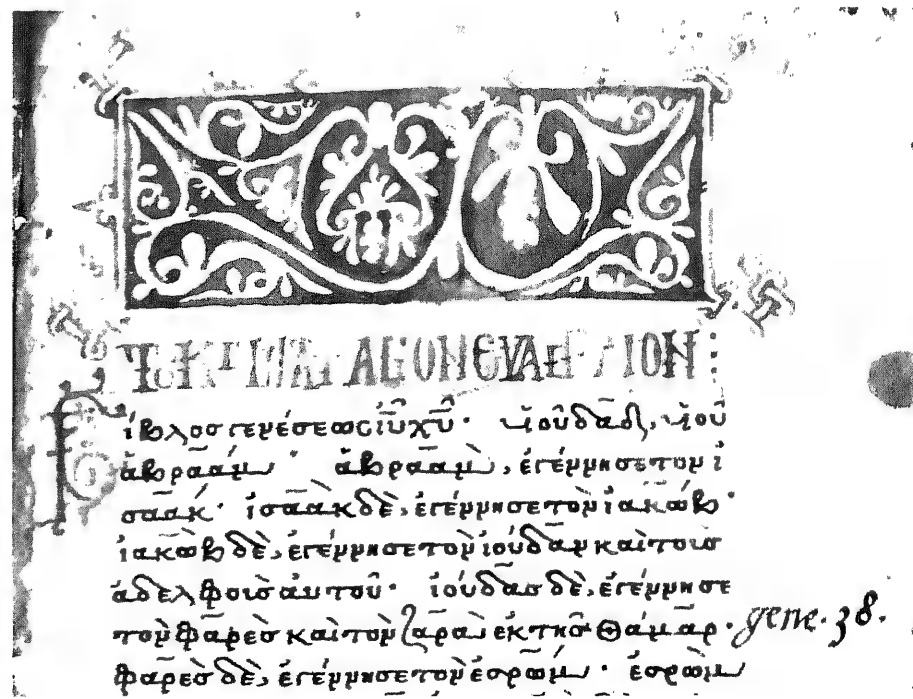 ΑΓΙΟΝ ΕΥΑΓΓΕΛΙΟΝ:
Βίβλος γενέσεως ἰῡ χῡ· υἱοῦ δᾱδ, υἱοῦ
ἀβραάμ· ἀβραὰμ, ἐγέννησε τὸν ἰ
σαάκ· ἰσαὰκ δὲ, ἐγέννησε τὸν ἰακώβ·
ἰακὼβ δὲ, ἐγέννησε τὸν ἰούδαν καὶ τοὺς
ἀδελφοὺς αὐτοῦ· ἰούδας δὲ, ἐγέννησε
τὸν φαρὲς καὶ τὸν ζαρὰ, ἐκ τῆς θάμαρ· gene. 38.
φαρὲς δὲ, ἐγέννησε τὸν ἐσρώμ· ἐσρὼμ